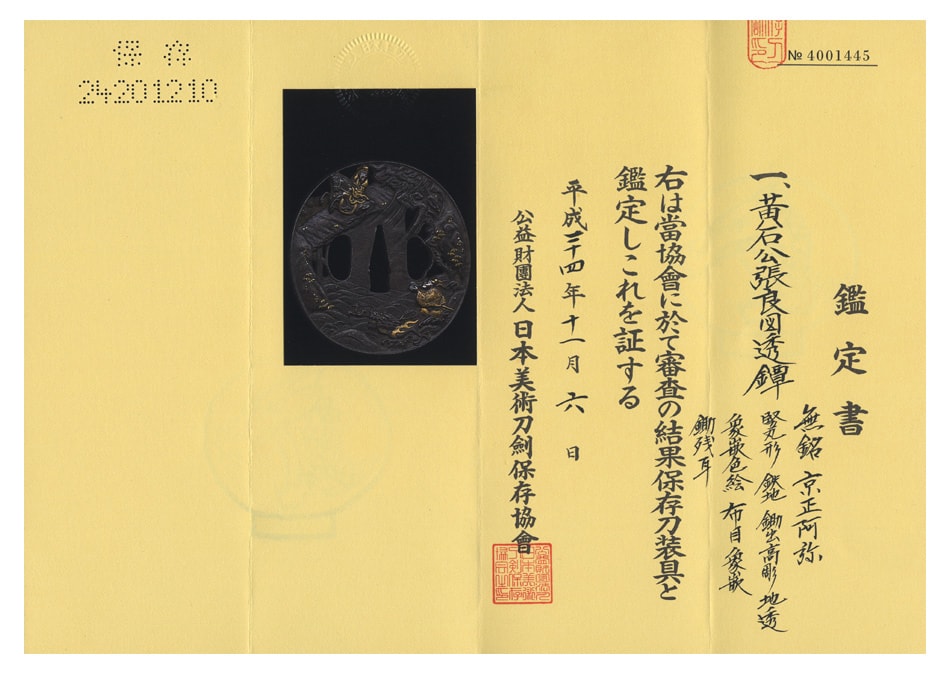 № 4001445
鑑定書
一、黄石公張良図透鐔
無銘 京正阿弥
竪丸形 鉄地 鋤出高彫 地透
象嵌色絵 布目象嵌
鋤残耳
右は當協會に於て審査の結果保存刀装具と
鑑定しこれを証する
平成二十四年十二月六日
公益財團法人 日本美術刀劍保存協會
保存
24201210